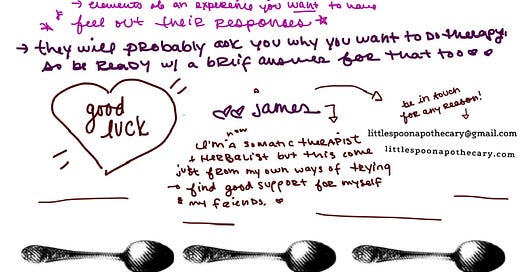 elements of an experience you want to have
feel out their responses
they will probably ask you why you want to do therapy,
so be ready w/ a brief answer for that too
good
luck
james
be in touch
for any reason!
littlespoonapothecary@gmail.com
littlespoonapothecary.com
now
i'm a somatic therapist
+ herbalist but this come
just from my own ways of trying
find good support for myself
& my friends.